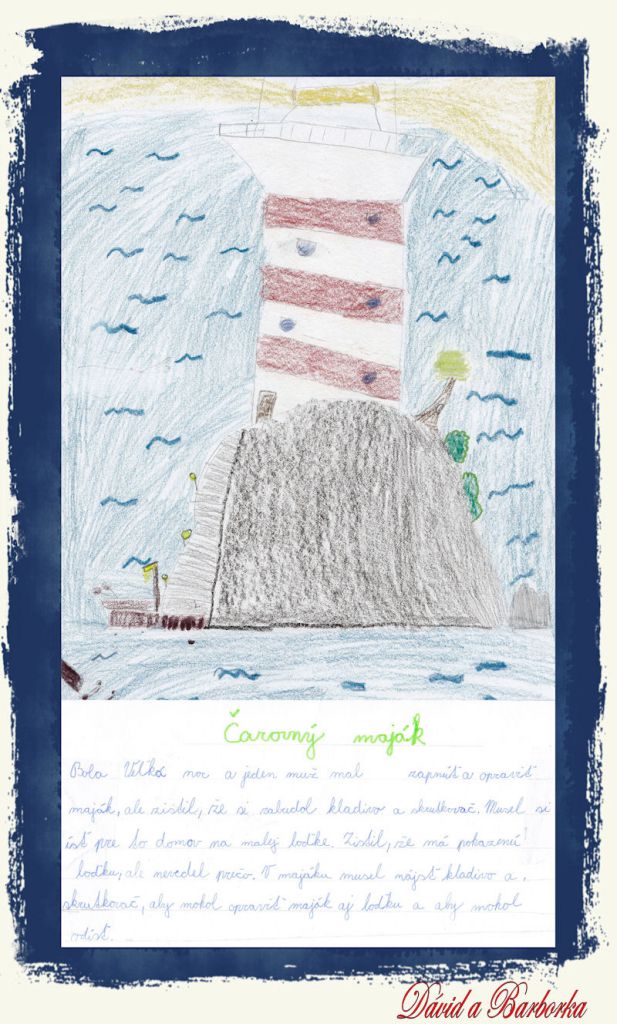 Čarovný maják
Bola Veľká noc a jeden muž mal zapnúť a opraviť
maják, ale zistil, že si zabudol kladivo a skrutkovač. Musel si
ísť pre to domov na malej loďke. Zistil, že má pokazenú
loďku, ale nevedel prečo. V majáku musel nájsť kladivo a
skrutkovač, aby mohol opraviť maják aj loďku a aby mohol
odísť.
Dávid a Barborka